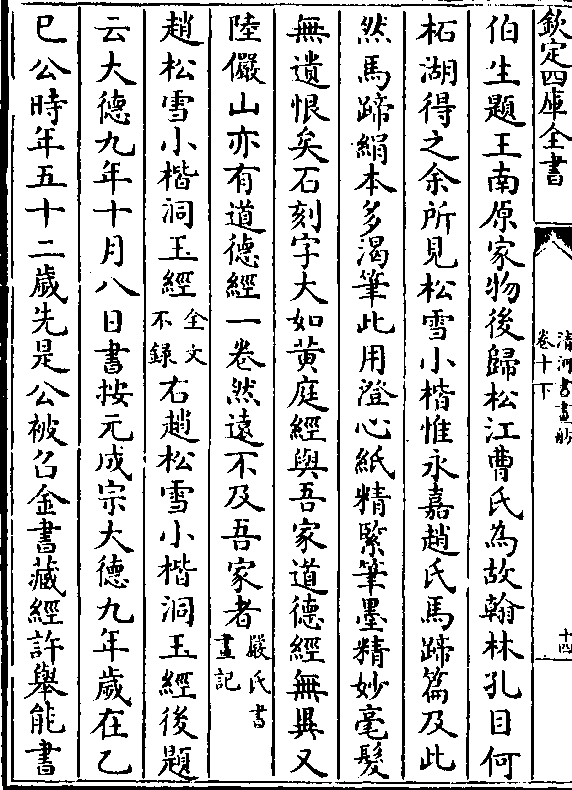 欽定四庫全書
清河書畫舫
卷十下
十四
伯生題王南原家物後歸松江曹氏為故翰林孔目何
柘湖得之余所見松雪小楷惟永嘉趙氏馬蹄篇及此
然馬蹄絹本多渴筆此用澄心紙精緊筆墨精妙毫髮
無遺恨矣石刻字大如黃庭經與吾家道德經無異又
陸儼山亦有道德經一卷然遠不及吾家者嚴氏書畫記
趙松雪小楷洞玉經全文不錄右趙松雪小楷洞玉經後題
云大德九年十月八日書按元成宗大德九年歲在乙
巳公時年五十二歲先是公被召金書藏經許舉能書